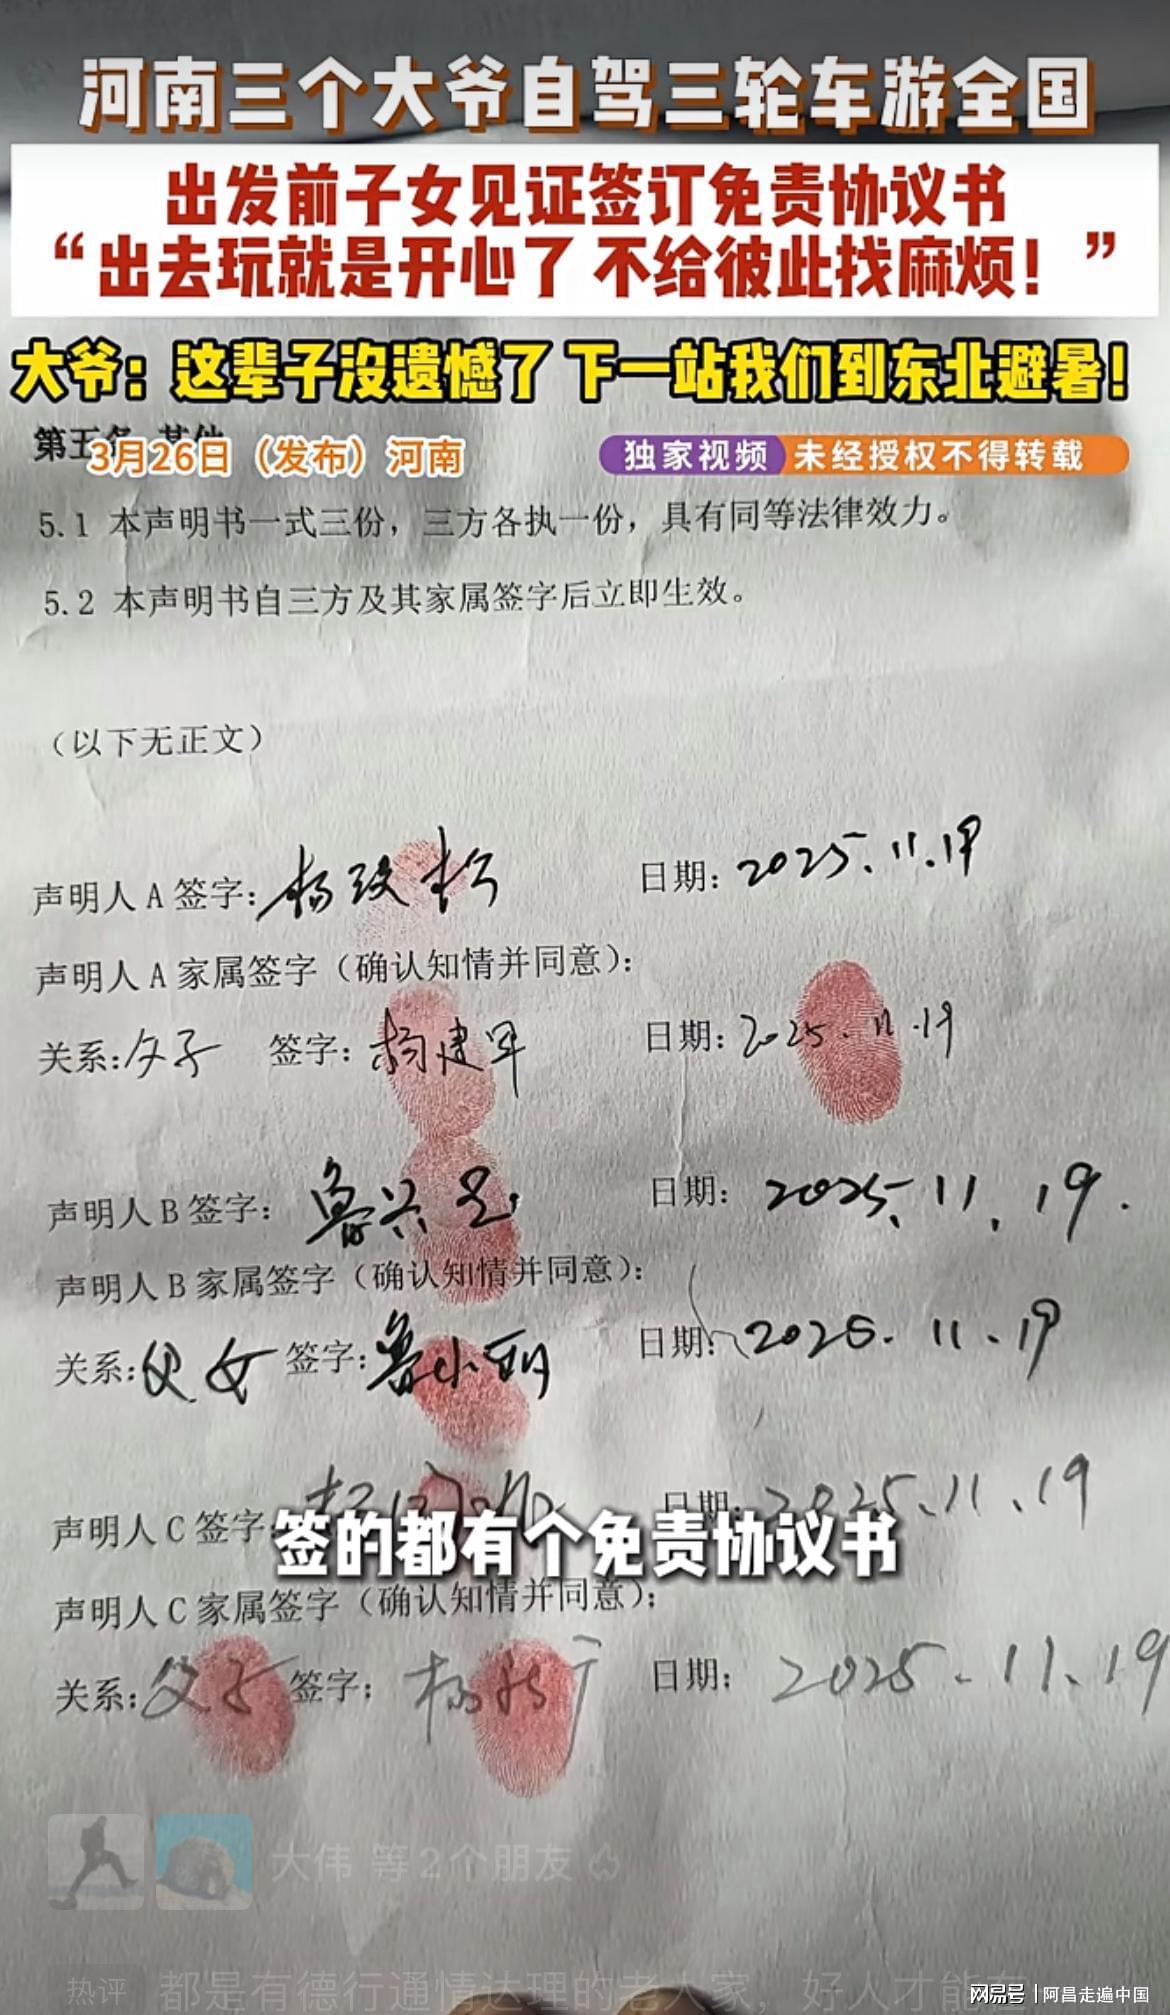 河南三个大爷自驾三轮车游全国
出发前子女见证签订免责协议书
“出去玩就是开心了 不给彼此找麻烦！”
大爷：这辈子没遗憾了 下一站我们到东北避暑！
第五条 其他
3月26日（发布）河南
独家视频 未经授权不得转载
5.1 本声明书一式三份，三方各执一份，具有同等法律效力。
5.2 本声明书自三方及其家属签字后立即生效。
（以下无正文）
声明人 A 签字： 日期：2025.11.19
声明人 A 家属签字（确认知情并同意）：
关系：父子 签字：杨建军 日期：2025.11.19
声明人 B 签字： 日期：2025.11.19.
声明人 B 家属签字（确认知情并同意）：
关系：父女 签字：鲁小丽 日期：2025.11.19
声明人 C 签字： 日期：2025.11.19
签的都有个免责协议书
声明人 C 家属签字（确认知情并同意）：
关系：父子 签字： 日期：2025.11.19
大伟 等2个朋友
热评 都是有德行通情达理的老人家，好人才能
网易号 | 阿昌走遍中国